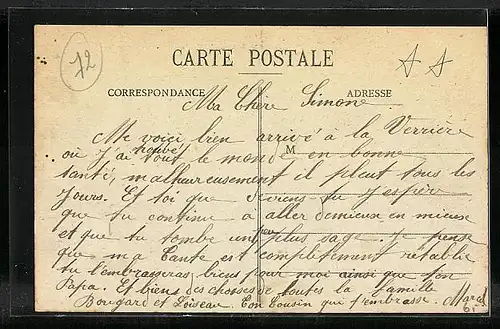 72
CARTE POSTALE
CORRESPONDANCE
ADRESSE
Ma Chère Simone
M
Me voici bien arrivé à la Verrière
où j'ai trouvé tout le monde en bonne
santé, malheureusement il pleut tous les
jours. Et toi que deviens-tu j'espère
que tu continue à aller demieux en mieux
et que tu tombe un peu plus sage. je pense
que ma Tante est complètement rétablie
tu l'embrasseras bien pour moi ainsi que ton
Papa. Et biens des choses de toutes la famille
Bougard et Loiseau. Ton Cousin qui t'embrasse. Marcel